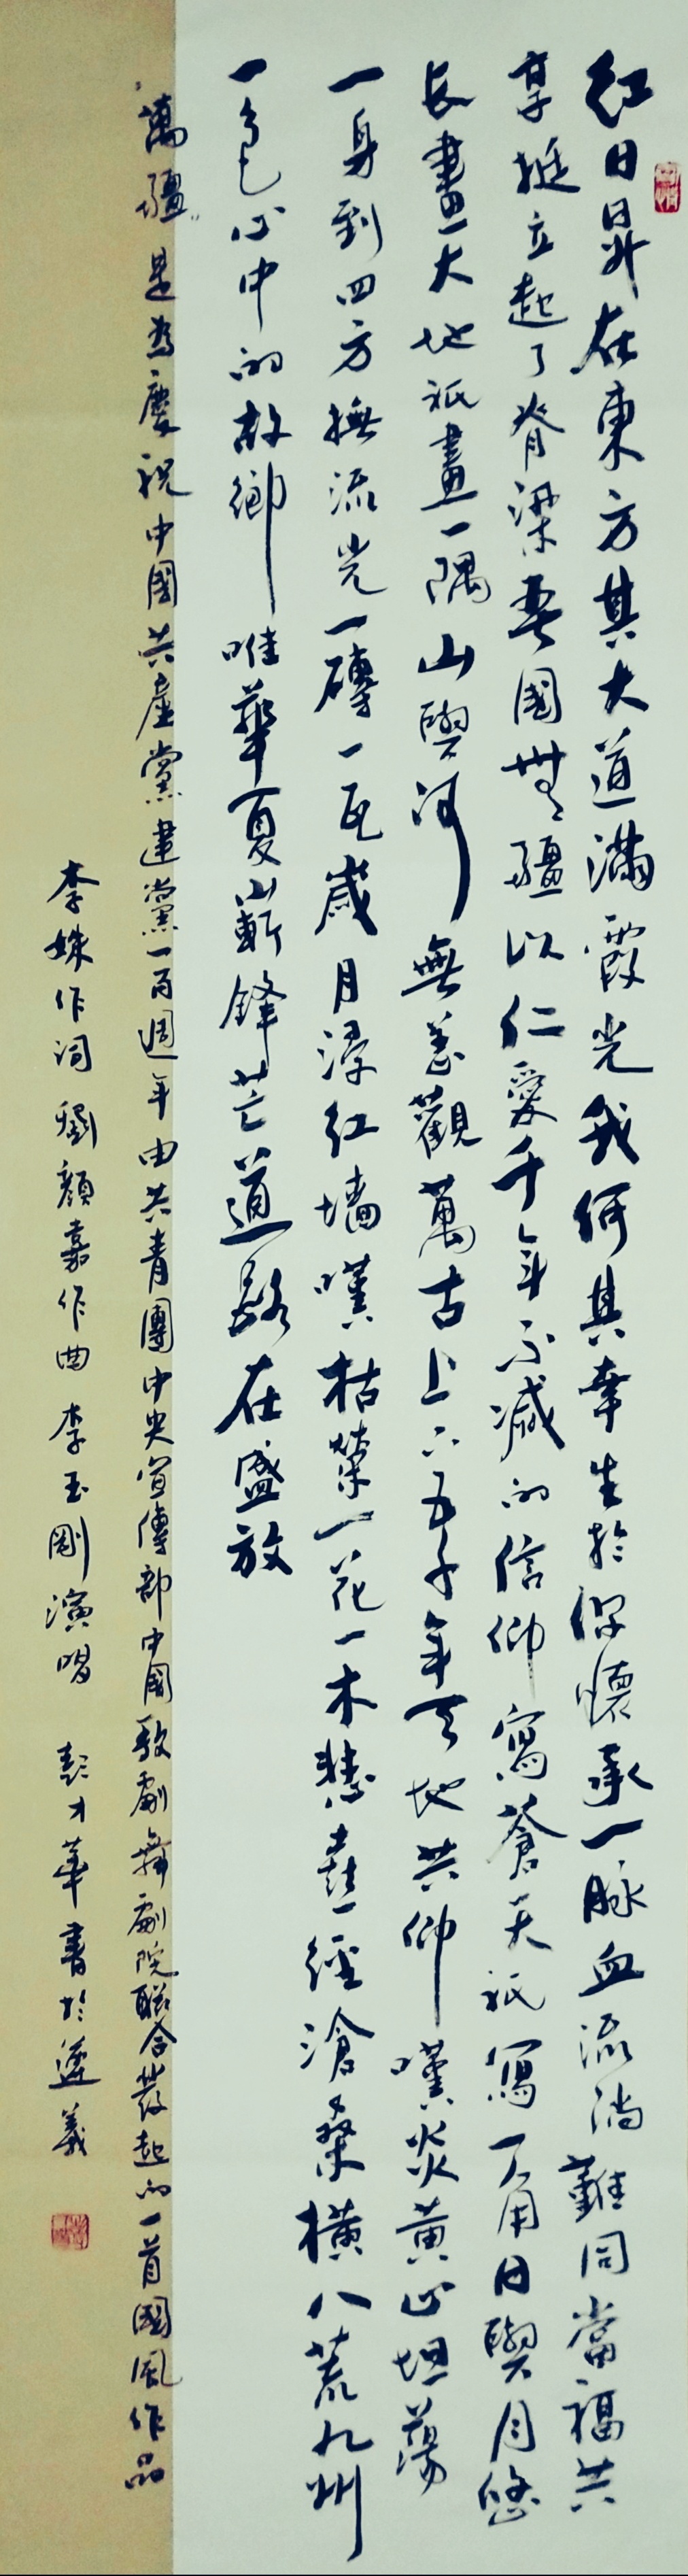 紅日昇在東方其大道滿霞光我何其幸生於你懷承一脉血流淌難同當福共
享挺立起了脊梁吾國無疆以仁愛千年不減的信仰寫蒼天祇寫一角日與月悠
長畫大地祇畫一隅山與河無恙觀萬古上下五千年天地共仰嘆炎黃心坦蕩
一身到四方撫流光一磚一瓦歲月浸紅墻嘆枯榮一花一木悲喜經滄桑橫八荒九州
一色心中的故鄉唯華夏嶄鋒芒道路在盛放
萬疆是為慶祝中國共產黨建黨一百週年由共青團中央宣傳部中國歌劇舞劇院聯合發起的一首國風作品
李姝作詞劉顏嘉作曲李玉剛演唱彭才華書於遵義